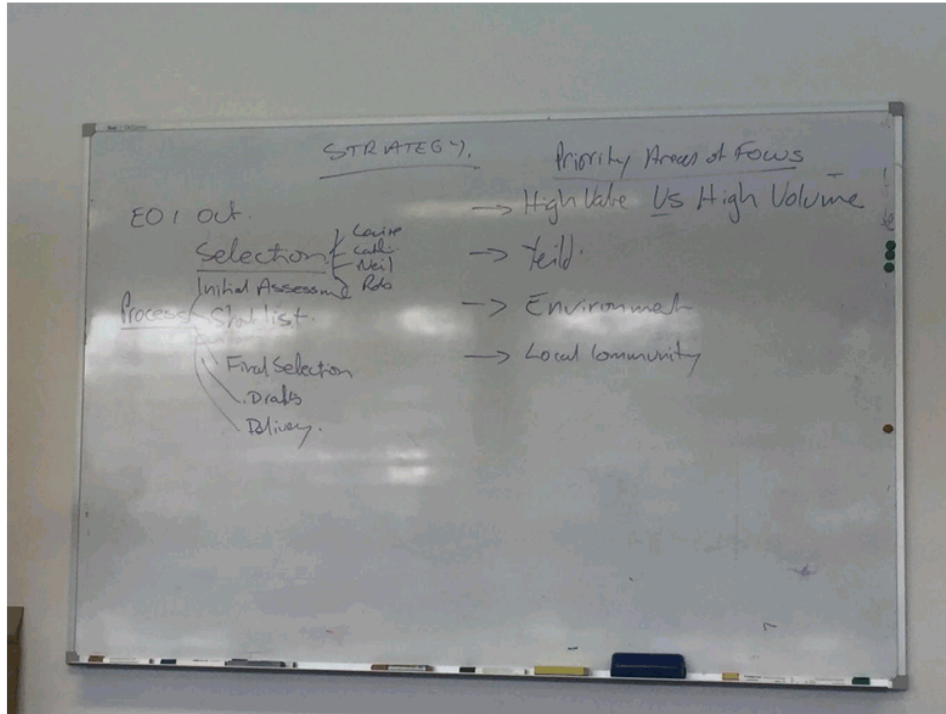 STRATEGY.
EOI Out.
Selection
Louise
Neil
Rob
Initial Assessme
Process
Shortlist.
Final Selection
Drafts
Delivery.
Priority Areas of Focus
→ High Value Vs High Volume
→ Yeild.
→ Environment
→ Local Community